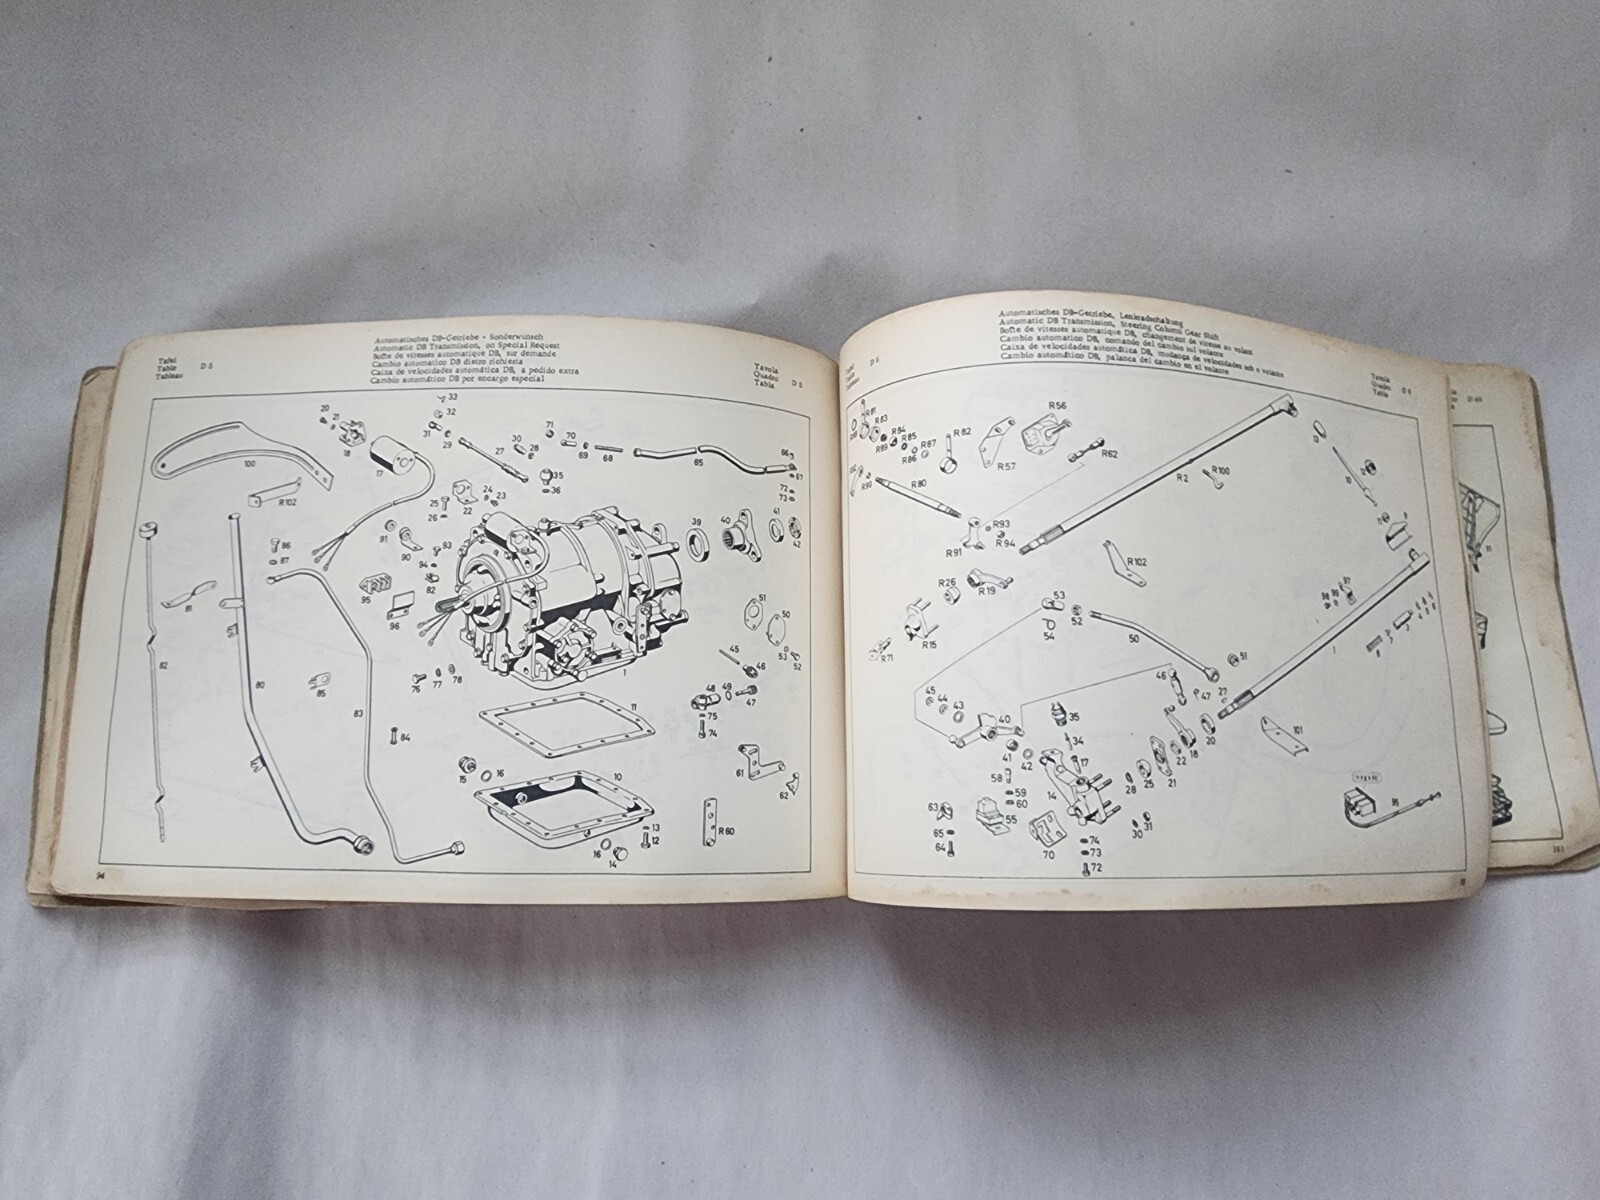 Tafel
Table
Tableau
D 5
Automatisches DB-Getriebe - Sonderwunsch
Automatic DB Transmission, on Special Request
Boîte de vitesses automatique DB, sur demande
Cambio automatico DB dietro richiesta
Caixa de velocidades automática DB, a pedido extra
Cambio automático DB por encargo especial
Tavola
Quadro
Tabla
D 5
33
20
21
32
31
29
18
17
27
30
28
71
70
69
68
65
66
67
72
73
100
R102
35
36
25
26
22
24
23
39
40
41
42
91
90
93
94
82
86
87
95
96
81
51
50
53
52
82
80
85
83
84
76
77
78
1
45
46
47
48
49
75
74
11
15
16
10
61
62
13
12
16
14
R60
94
D 6
Automatisches DB-Getriebe, Lenkradschaltung
Automatic DB Transmission, Steering Column Gear Shift
Boîte de vitesses automatique DB, changement de vitesse au volant
Cambio automatico DB, comando del cambio sul volante
Caixa de velocidades automática DB, mudança de velocidades sob o volante
Cambio automático DB, palanca del cambio en el volante
Tavola
Quadro
Tabla
D 6
R81
R83
R84
R85
R87
R86
R82
R57
R56
R62
R80
R90
R2
R100
R93
R94
R91
R102
R26
R19
R15
R71
53
54
52
50
51
46
47
27
45
44
43
40
35
34
41
42
58
59
60
55
17
14
28
25
21
22
18
20
101
97
1
63
65
64
70
74
73
72
30
31
11